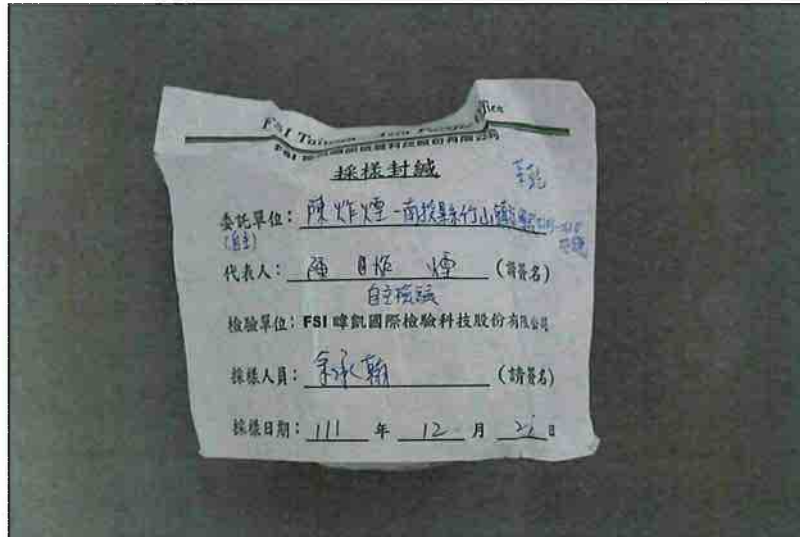 FSI Taiwan
採樣封緘
委託單位：陳炸煙-南投縣竹山鎮
(自主)
代表人：陳 炸 煙 (請簽名)
自主檢驗
檢驗單位：FSI 暐凱國際檢驗科技股份有限公司
採樣人員：余承翰 (請簽名)
採樣日期：111 年 12 月 日